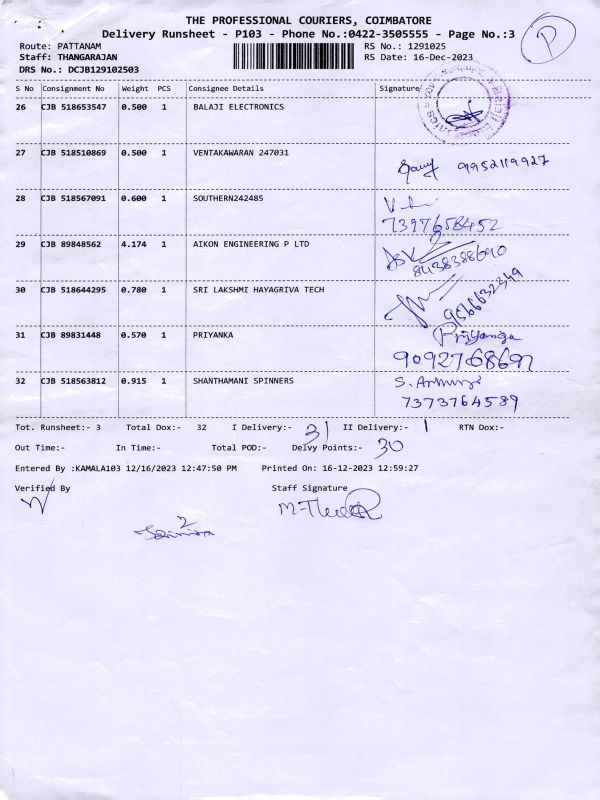 THE PROFESSIONAL COURIERS, COIMBATORE
Delivery Runsheet - P103 - Phone No.:0422-3505555 - Page No.:3
P
Route: PATTANAM
RS No.: 1291025
Staff: THANGARAJAN
RS Date: 16-Dec-2023
DRS No.: DCJB129102503
S No Consignment No Weight PCS Consignee Details Signature
26 CJB 518653547 0.500 1 BALAJI ELECTRONICS
27 CJB 518510869 0.500 1 VENTAKAWARAN 247031
9952119927
28 CJB 518567091 0.600 1 SOUTHERN242485
7397658452
29 CJB 89848562 4.174 1 AIKON ENGINEERING P LTD
8438388690
30 CJB 518644295 0.780 1 SRI LAKSHMI HAYAGRIVA TECH
31 CJB 89831448 0.570 1 PRIYANKA
Priyanga
9092768697
32 CJB 518563812 0.915 1 SHANTHAMANI SPINNERS
7373764589
Tot. Runsheet:- 3 Total Dox:- 32 I Delivery:- 31 II Delivery:- 1 RTN Dox:-
Out Time:- In Time:- Total POD:- Delvy Points:- 30
Entered By :KAMALA103 12/16/2023 12:47:50 PM Printed On: 16-12-2023 12:59:27
Verified By Staff Signature
2